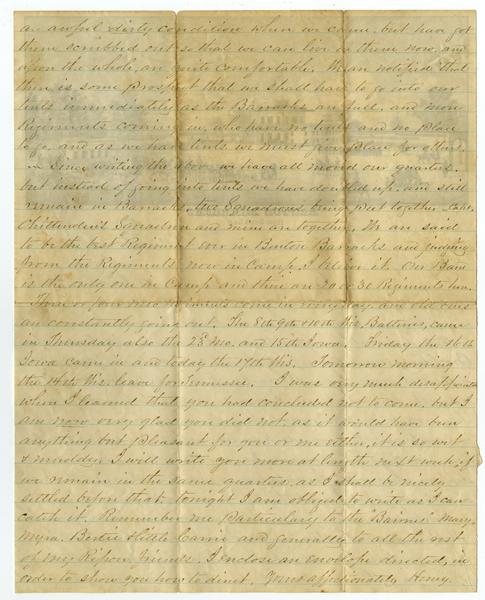 an awful dirty condition when we came, but have got
them scrubbed out so that we can live in them now, and
upon the whole, are quite comfortable. We are notified that
there is some prospect that we shall have to go into our
tents immediately as the Barracks are full, and more
Regiments coming in, who have no tents and no place
to go, and as we have tents we must give place for others.
Since writing the above we have all moved our quarters
but instead of going into tents we have doubled up, and still
remain in Barracks, two Squadrons being put together. Capt.
Chittenden's Squadron and mine are together. We are said
to be the best Regiment ever in Benton Barracks and judging
from the Regiments now in Camp, I believe it. Our Band
is the only one in Camp and there are 20 or 30 Regiments here.
Three or four new regiments come in every day and old ones
are constantly going out. The 8th 9th & 10th Wis. Batteries, came
in Thursday also the 23 Mo. and 15th Iowa. Friday the 16th
Iowa came in and today the 17th Wis. Tomorrow morning
the 14th Wis. leave for Tennessee. I was very much disappointed
when I learned that you had concluded not to come, but I
am now very glad you did not, as it would have been
anything but pleasant for you or me either, it is so wet
& muddy. I will write you more at length next week, if
we remain in the same quarters, as I shall be nicely
settled before that. tonight I am obliged to write as I can
catch it. Remember me particularly to the "Bairns" Mary,
Myra, Bertie Little Carrie and generally to all the rest
of my Ripon friends. I enclose an envelope directed, in
order to show you how to direct. Yours affectionately Henry